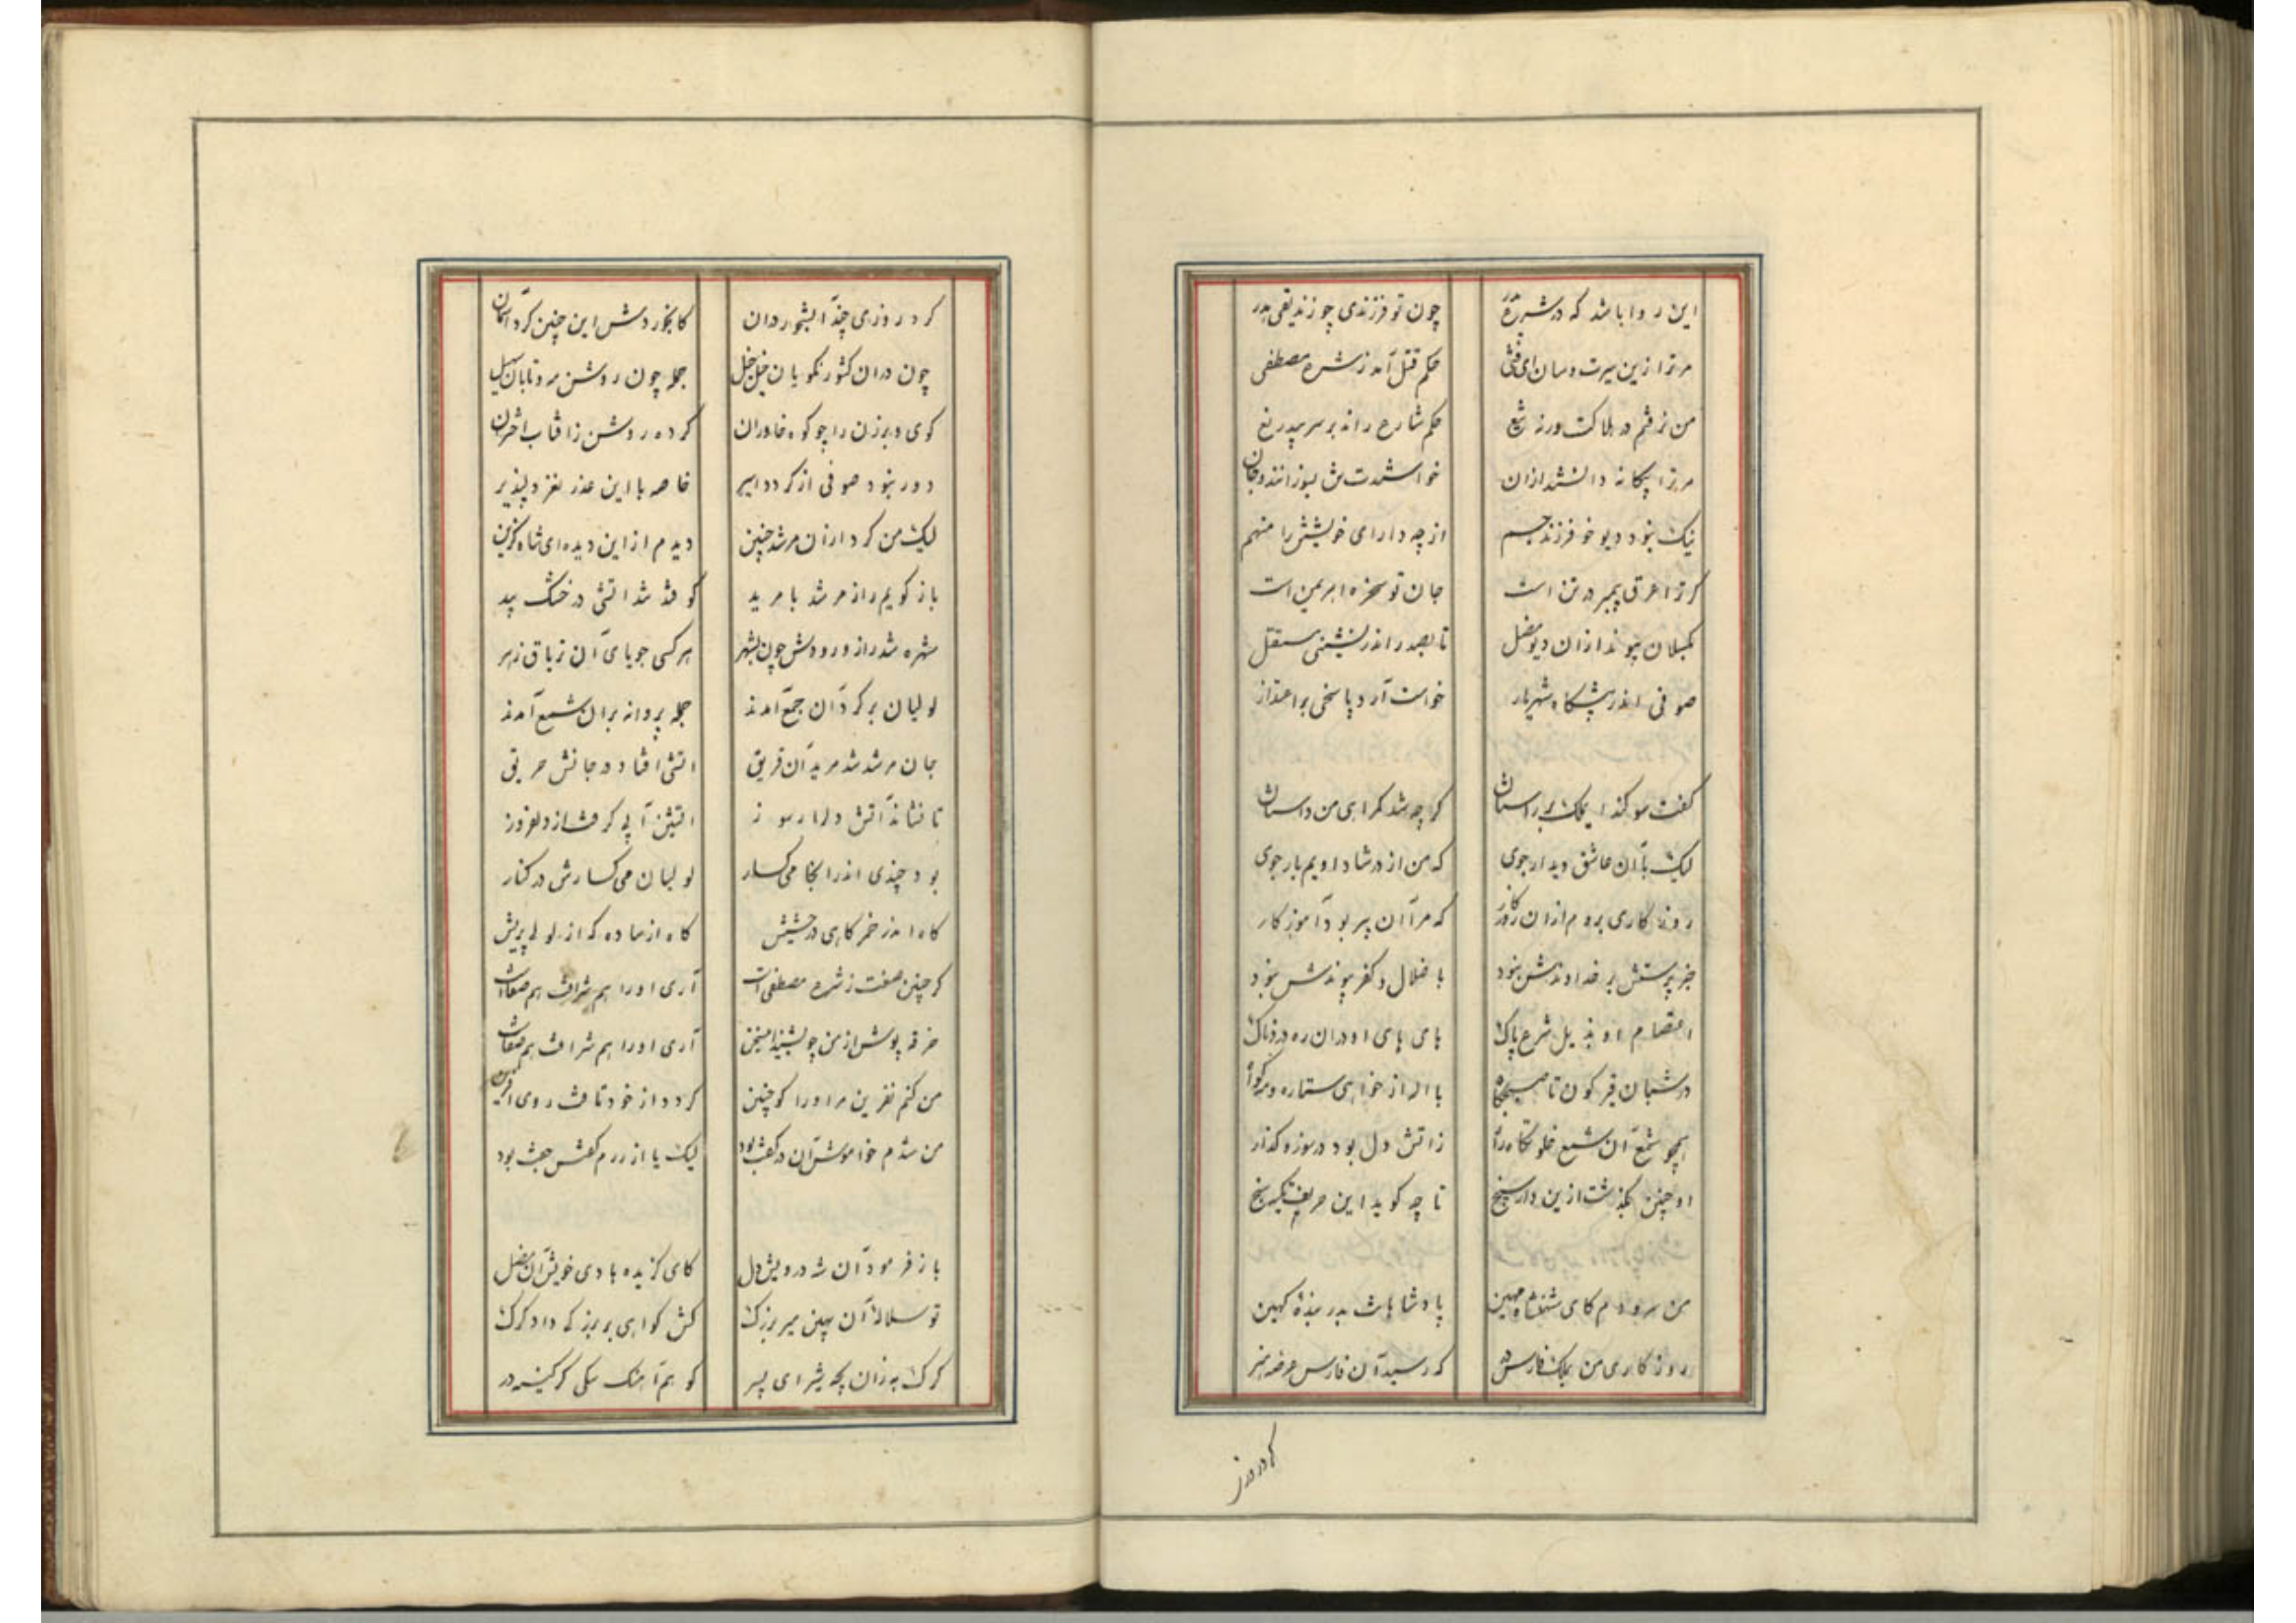 این روا باشد که در شرع
چون تو فرزندی چو زندیقی پدر
مر ترا زین سیرت و سان ای فتی
حکم قتل آمد ز شرع مصطفی
من نرفتم در هلاکت ورنه
حکم شارع راند بر سر بیدریغ
مر ترا بیگانه دانستند ازان
خواستندت بسوزانند و جان
نیک نبود دیو خو فرزند جم
از چه دارای خویشش را متهم
گر ترا عرق پیمبر در تن است
جان تو سخره اهریمن است
بگسلان پیوند ازان دیو مضل
تا بصدر اندر نشینی مستقل
صوفی اندر پیشگاه شهریار
خواست آرد پاسخی بر اعتذار
گفت سوگند ای ملک بر راستان
گرچه شد گمراهی من داستان
لیک با آن عاشق دیدار جوی
که من از ارشاد اویم بار جوی
روزگاری بردم ازان
که مرا آن پیر بود آموزگار
جز پرستش بر خداوندش نبود
با ضلال و کفر پیوندش نبود
اعتصام او بذیل شرع پاک
پای او دران ره
در شبان قیرگون تا صبحگاه
با اله از خواهی ستاره
همچو شمع آن شمع خلوتگاه راز
ز اتش دل بود در سوز و گداز
او چنین بگذشت ازین دار سپنج
تا چه گوید این حریف
من سرودم کای شهنشاه مهین
پادشاهات بدر بنده کهین
روزگاری من بملک فارس در
که رسید آن فارس عرضه هنر
کرد روزی
کرد روزی چند آبشخور دران
کابخوردش این چنین کرد آسمان
چون دران کشور نکویان خیل خیل
جمله چون روشن مه و تابان سهیل
کوی و برزن را چو کوه خاوران
کرده روشن ز افتاب اختران
دور نبود صوفی ار گردد اسیر
خاصه با این عذر نغز دلپذیر
لیک من کردار آن مرشد چنین
دیدم از این دیده ای شاه گزین
باز گویم راز مرشد با مرید
کو فتد شد اتشی در خشک بید
شهره شد راز ورودش چون بشهر
هر کسی جویای آن تریاق زهر
لولیان بر گرد آن جمع آمدند
جمله پروانه بران شمع آمدند
جان مرشد شد مرید آن فریق
اتشی افتاد در جانش حریق
تا نشاند آتش دلدار سوز
اتشین آبی گرفت از دلفروز
بود چندی اندر انجا می گسار
لولیان می گسارش در کنار
گاه اندر خمر گاهی در حشیش
گاه از ساده گه از لولی پریش
گر چنین صفت ز شرع مصطفی است
آری او را هم شرافت هم صفاست
خرقه پوش از من چو بشنید این سخن
آری او را هم شرافت هم صفاست
من کنم نفرین مر او را کو چنین
گردد از خود تافت روی
من شدم خاموش آن در گفت بود
لیک یا از رزم گفتش جفت بود
باز فرمود آن شه درویش دل
کای گزیده بادی خویش آن مضل
تو سلاله آن مهین میر بزرگ
کش گواهی بر بزرگی داد گرگ
گرگ به زان بچه شیر ای پسر
کو هم آهنگ سگی گر کینه در